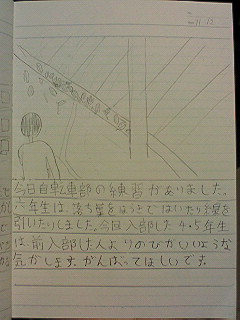 11.12
今日自転車部の練習がありました。
六年生は、落ち葉をほうきではいたり線を
引いたりしました。今回入部した4・5年生
は、前入部け人よりのびがいいような
気がします。がんばってほしいです。